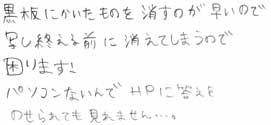 黒板にかいたものを消すのが早いので
写し終える前に消えてしまうので
困ります!
パソコンないんでHPに答えを
のせられても見れません…。